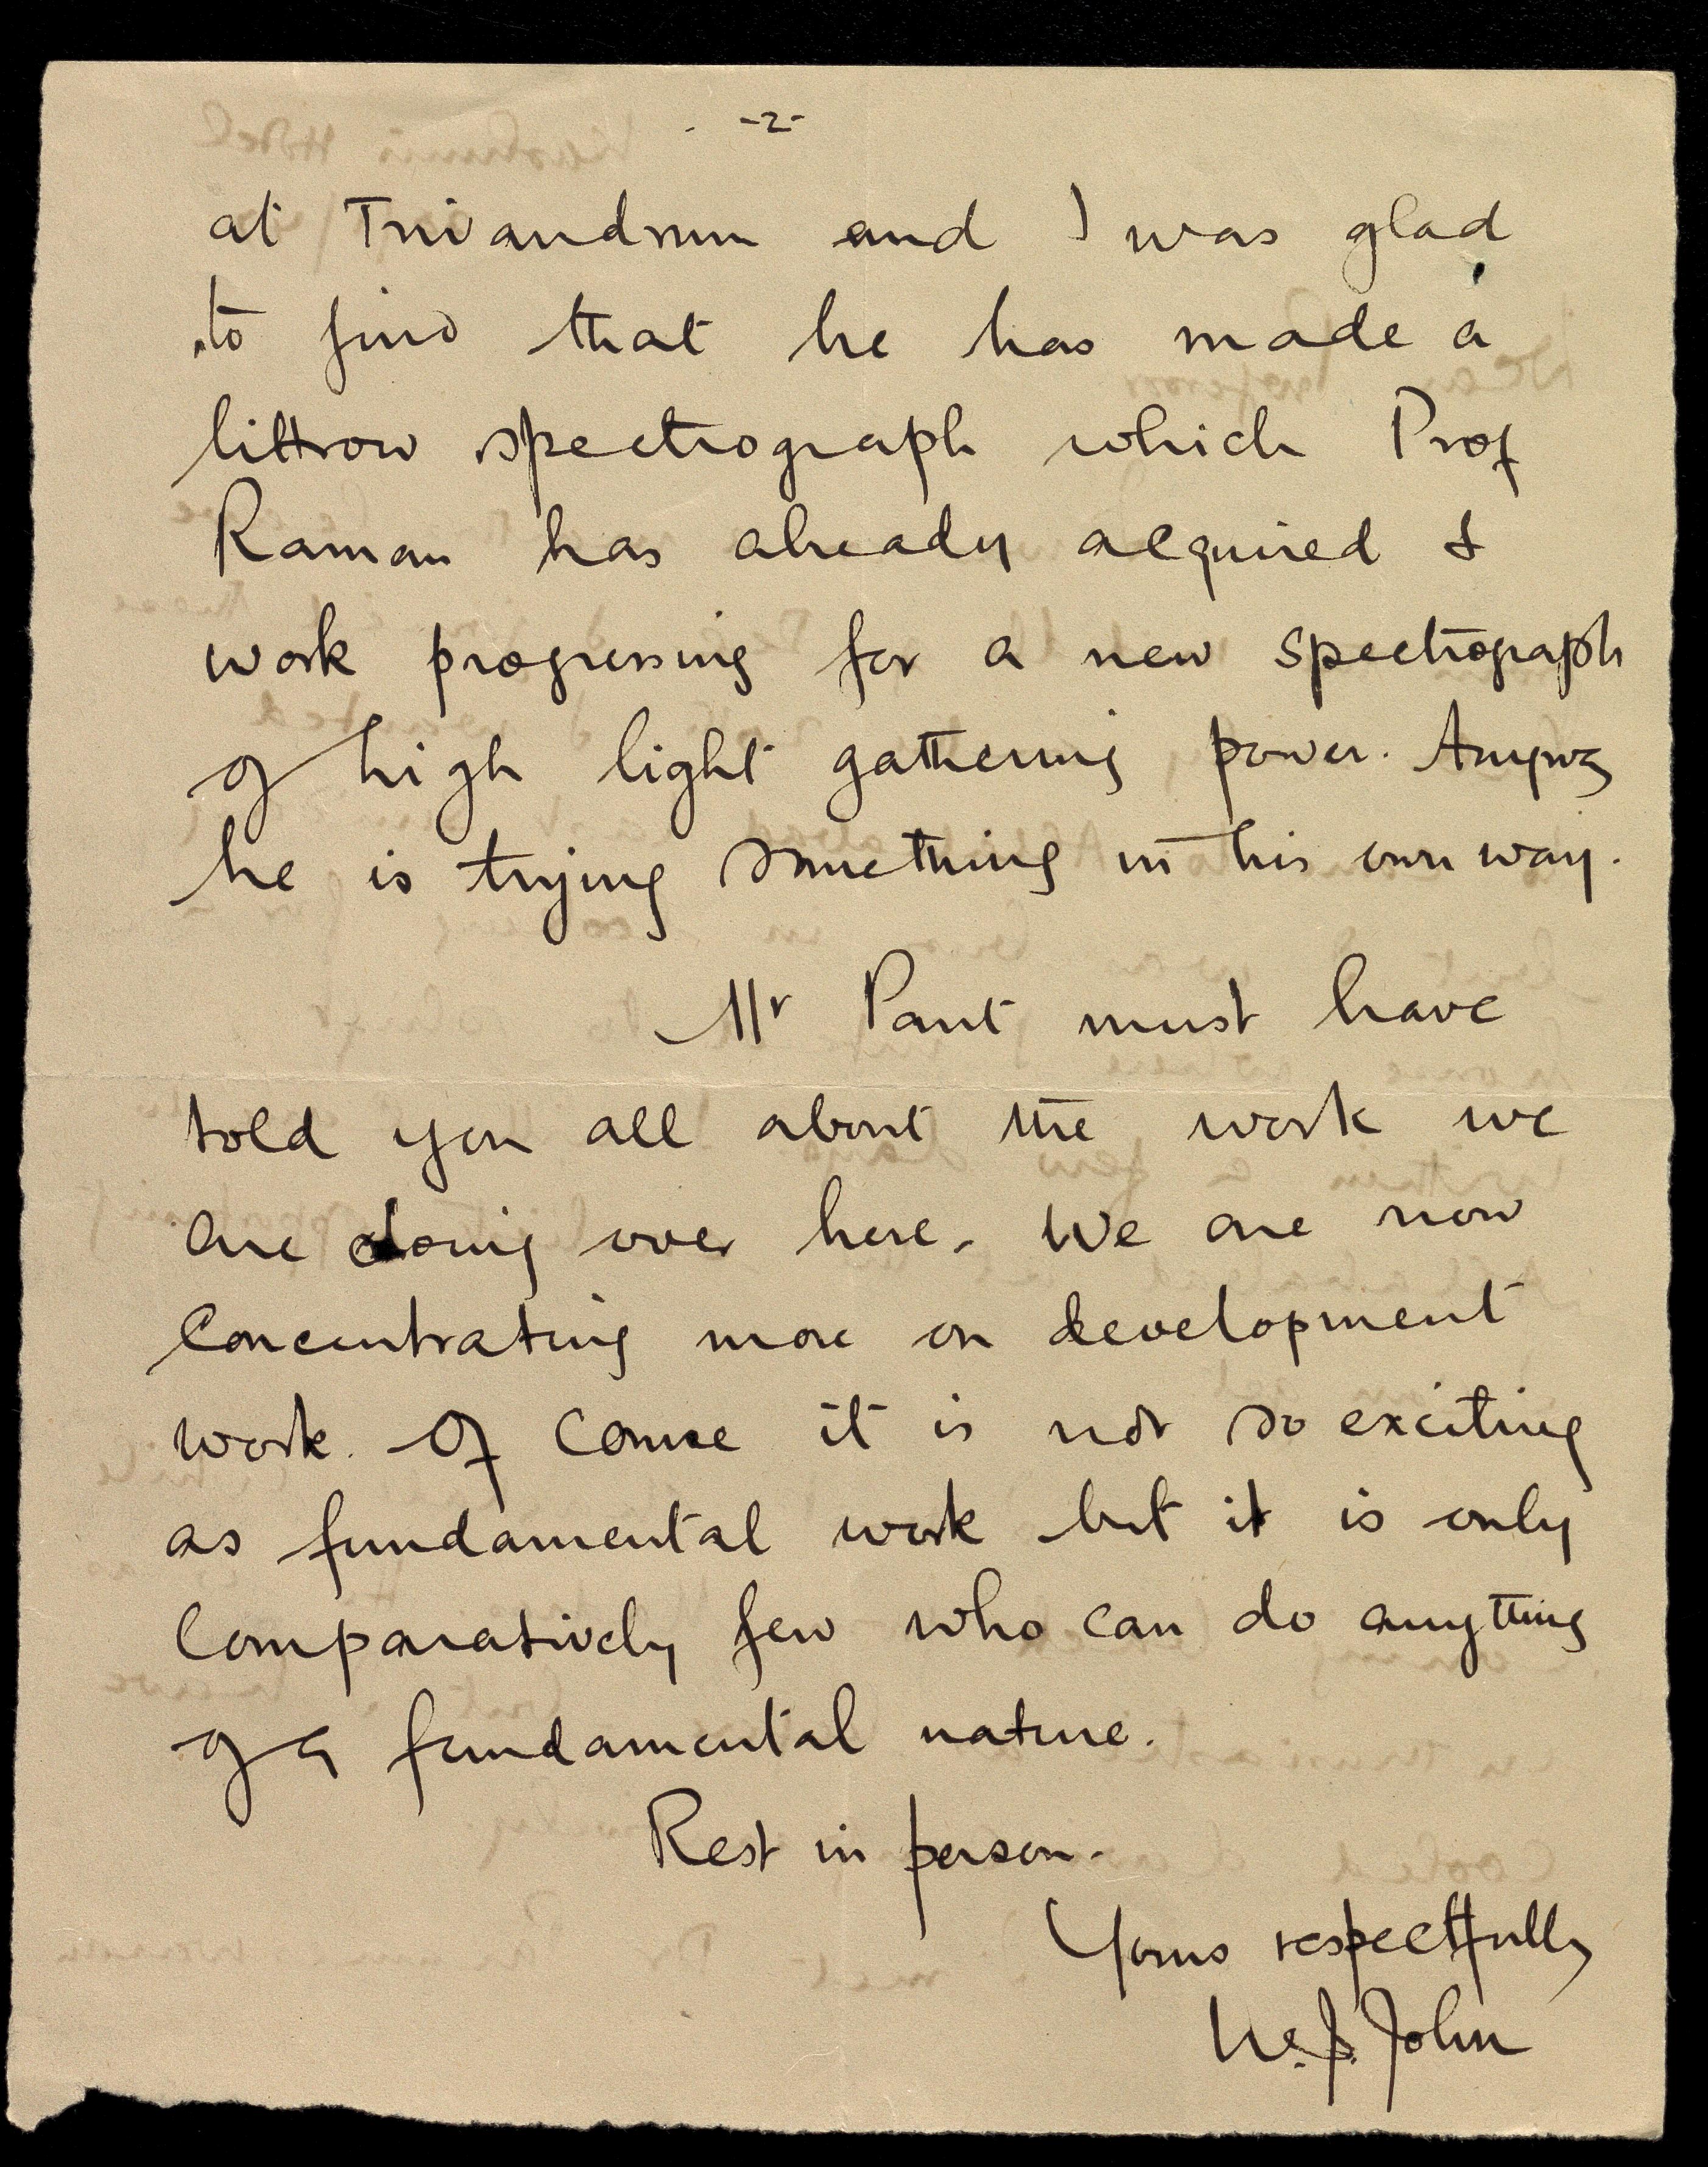 -2-
at Trivandrum and I was glad
to find that he has made a
littrow spectrograph which Prof
Raman has already acquired &
work progressing for a new spectrograph
of high light gathering power. Anyway
he is trying something in his own way.
Mr Pant must have
told you all about the work we
are doing over here. We are now
concentrating more on development
work. Of course it is not so exciting
as fundamental work but it is only
comparatively few who can do anything
of a fundamental nature.
Rest in person.
Yours respectfully
John